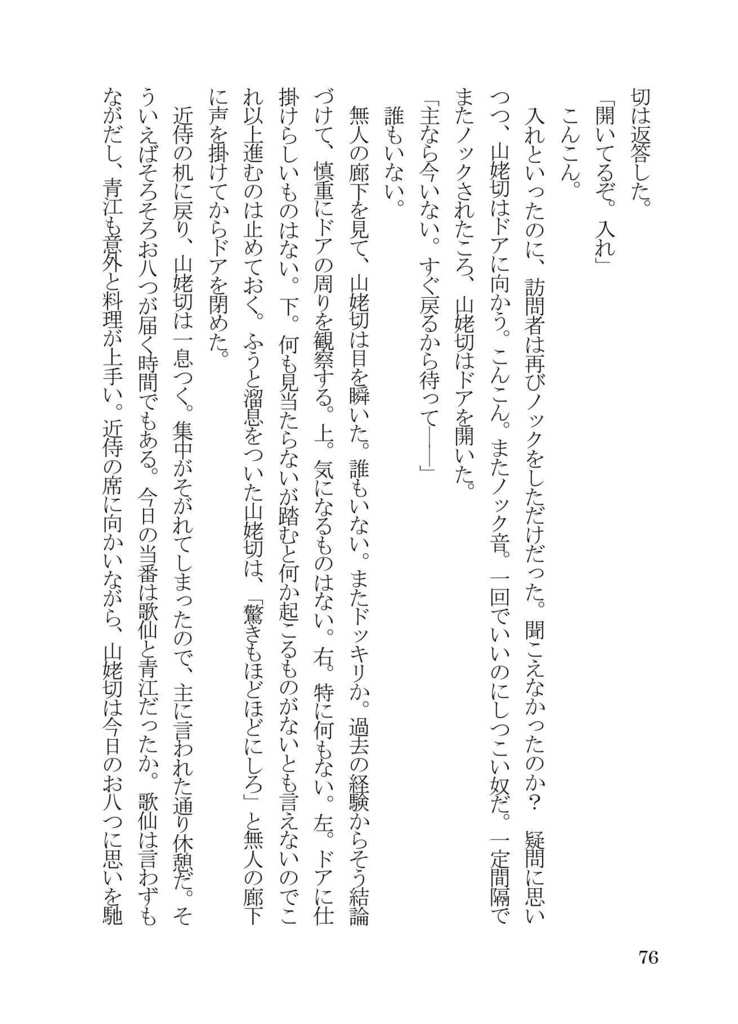 切は返答した。
「開いてるぞ。入れ」
こんこん。
入れといったのに、訪問者は再びノックをしただけだった。聞こえなかったのか？　疑問に思い
つつ、山姥切はドアに向かう。こんこん。またノック音。一回でいいのにしつこい奴だ。一定間隔で
またノックされたころ、山姥切はドアを開いた。
「主なら今いない。すぐ戻るから待って――」
誰もいない。
無人の廊下を見て、山姥切は目を瞬いた。誰もいない。またドッキリか。過去の経験からそう結論
づけて、慎重にドアの周りを観察する。上。気になるものはない。右。特に何もない。左。ドアに仕
掛けらしいものはない。下。何も見当たらないが踏むと何か起こるものがないとも言えないのでこ
れ以上進むのは止めておく。ふうと溜息をついた山姥切は、「驚きもほどほどにしろ」と無人の廊下
に声を掛けてからドアを閉めた。
近侍の机に戻り、山姥切は一息つく。集中がそがれてしまったので、主に言われた通り休憩だ。そ
ういえばそろそろお八つが届く時間でもある。今日の当番は歌仙と青江だったか。歌仙は言わずも
ながだし、青江も意外と料理が上手い。近侍の席に向かいながら、山姥切は今日のお八つに思いを馳
76